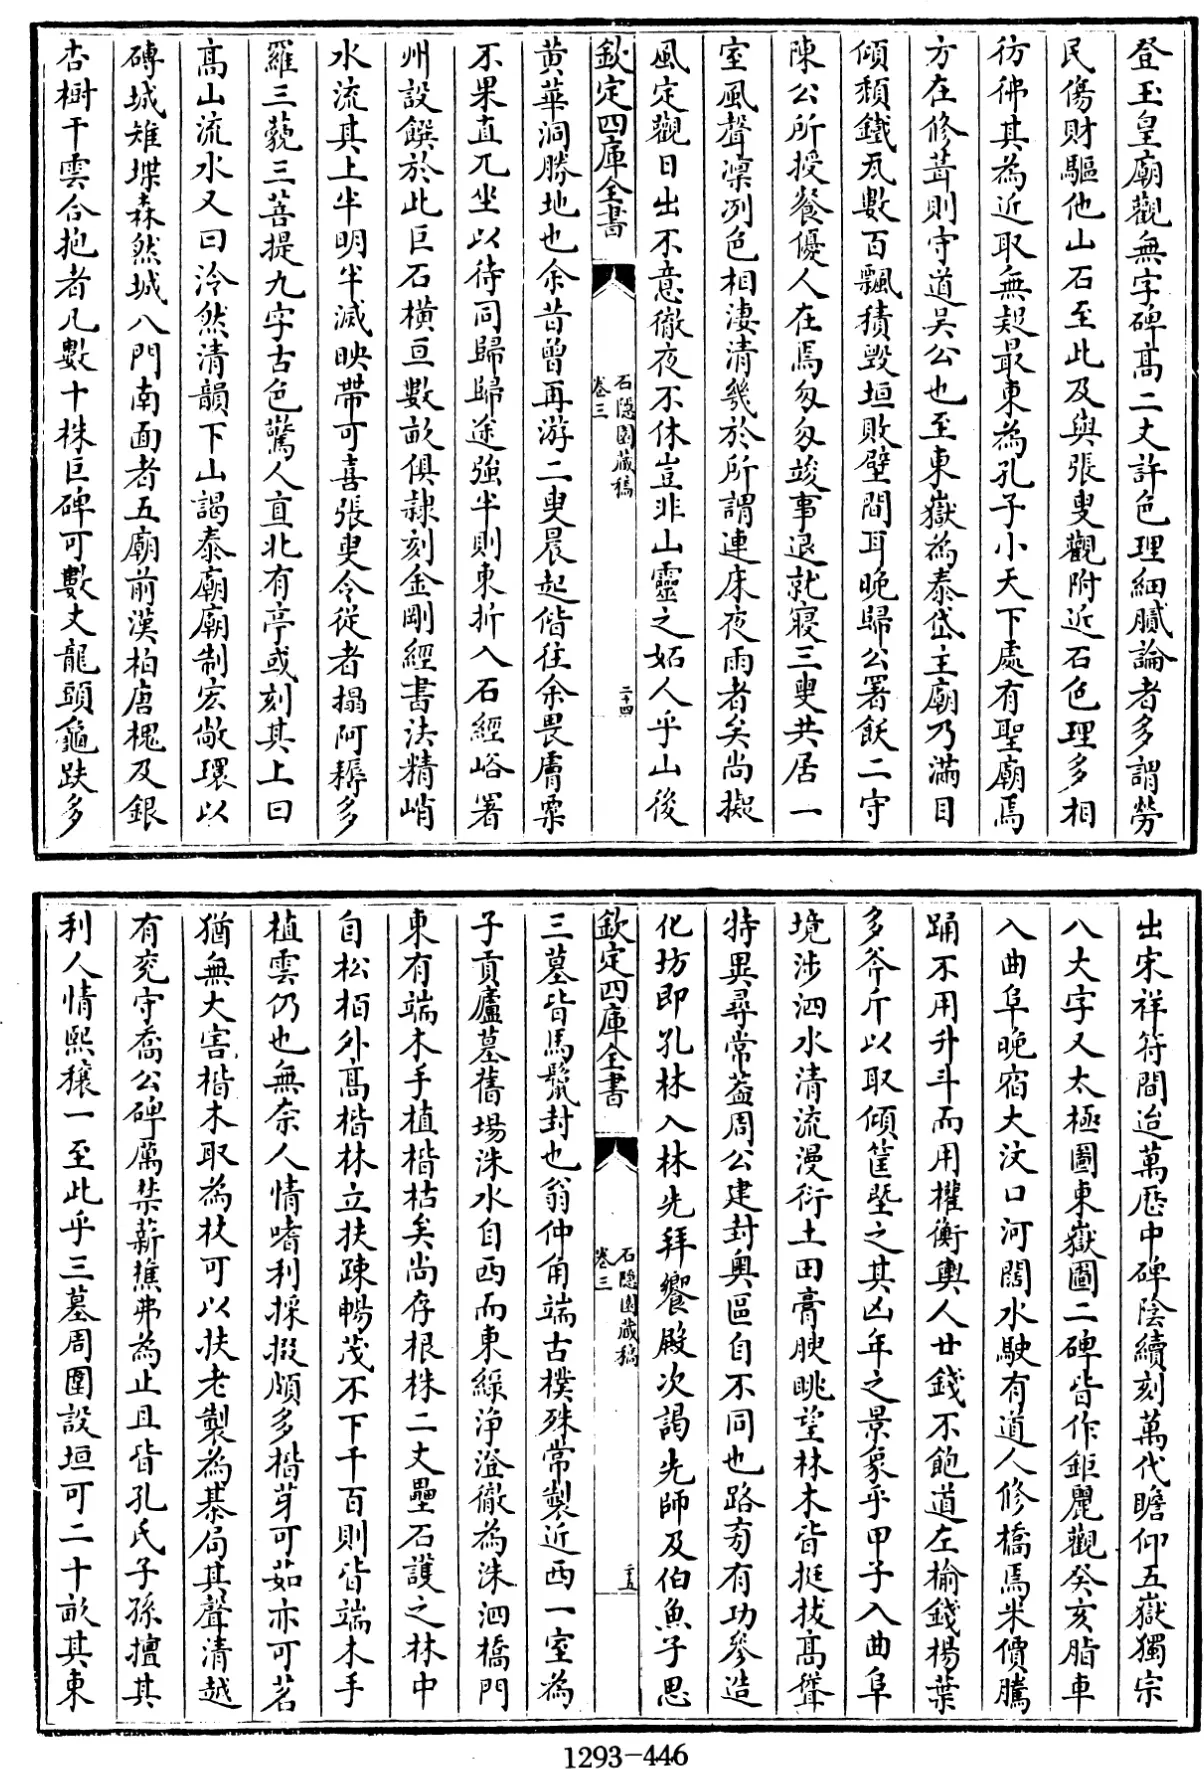 登玉皇廟觀無字碑髙二丈許色理細膩論者多謂勞
民傷財驅他山石至此及與張叟觀附近石色理多相
彷彿其為近取無疑最東為孔子小天下處有聖廟焉
方在修葺則守道吴公也至東嶽為泰岱主廟乃滿目
傾頽鐵瓦數百飄積毁垣敗壁間耳晚歸公署飲二守
陳公所授餐優人在焉匆匆竣事退就寢三叟共居一
室風聲凛冽色相凄清幾於所謂連床夜雨者矣尚擬
風定觀日出不意徹夜不休豈非山靈之妬人乎山後
欽定四庫全書
石隱園藏稿
卷三
二十四
黄華洞勝地也余昔曾再游二叟晨起偕往余畏膚粟
不果直兀坐以待同歸歸途強半則東折入石經峪署
州設饌於此巨石橫亘數畝俱隷刻金剛經書法精峭
水流其上半明半滅映帶可喜張叟令從者搨阿耨多
羅三藐三菩提九字古色驚人直北有亭或刻其上曰
髙山流水又曰泠然清韻下山謁泰廟廟制宏敞環以
磚城雉堞森然城八門南面者五廟前漢柏唐槐及銀
杏樹干雲合抱者凡數十株巨碑可數丈龍頭龜趺多
出宋祥符間迨萬厯中碑陰續刻萬代瞻仰五嶽獨宗
八大字又太極圖東嶽圖二碑皆作鉅麗觀癸亥脂車
入曲阜晚宿大汶口河闊水駛有道人修橋焉米價騰
踊不用升斗而用權衡輿人廿錢不飽道左榆錢楊葉
多斧斤以取傾筐塈之其凶年之景象乎甲子入曲阜
境涉泗水清流漫衍土田膏腴眺望林木皆挺拔髙聳
特異尋常葢周公建封奥區自不同也路旁有功參造
化坊即孔林入林先拜饗殿次謁先師及伯魚子思
欽定四庫全書
石隱園藏稿
卷三
二十五
三墓皆馬鬛封也翁仲甪端古樸殊常製近西一室為
子貢廬墓舊場洙水自西而東綠淨澄徹為洙泗橋門
東有端木手植楷枯矣尚存根株二丈壘石護之林中
自松栢外髙楷林立扶踈暢茂不下千百則皆端木手
植雲仍也無奈人情嗜利採掇頗多楷芽可茹亦可茗
猶無大害楷木取為杖可以扶老製為棊局其聲清越
有兖守喬公碑厲禁薪樵弗為止且皆孔氏子孫擅其
利人情熙穰一至此乎三墓周圍設垣可二十畝其東
1293-446